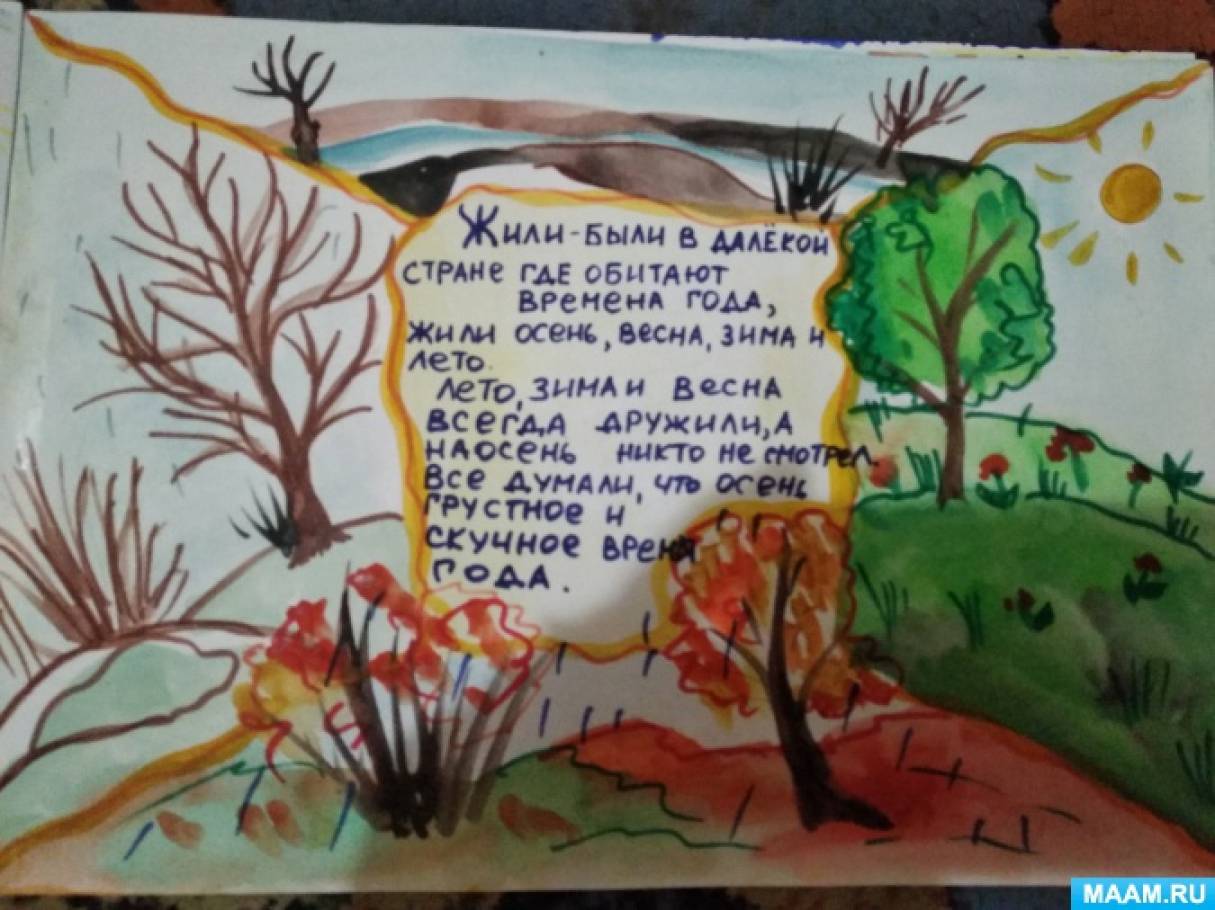 Жили-были в далёкой
стране где обитают
времена года,
жили осень, весна, зима и
лето.
Лето, зима и весна
всегда дружили, а
на осень никто не смотрел.
Все думали, что осень
грустное и
скучное время
года.
MAAM.RU